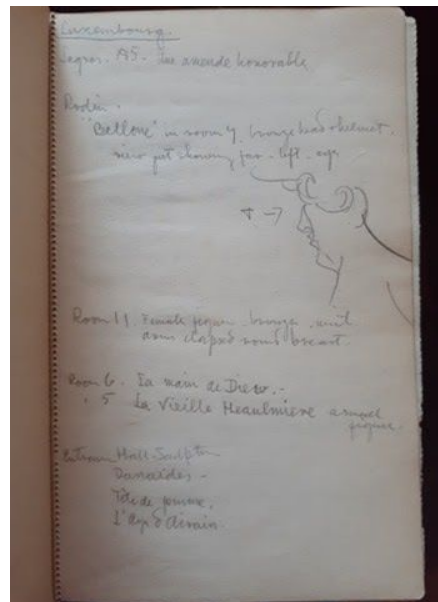 Luxembourg.
Legros. 195. Une amende honorable
Rodin.
"Bellone" in room 4. bronze head + helmet.
view just showing far - left - eye
Room 11. Female figure. bronze. with
arms clasped round breast.
Room 6. La main de Dieu. -
" 5 La Vieille Heaulmière
figure.
Entrance Hall - Sculpture
Danaides -
Tête de femme.
L'age d'airain.